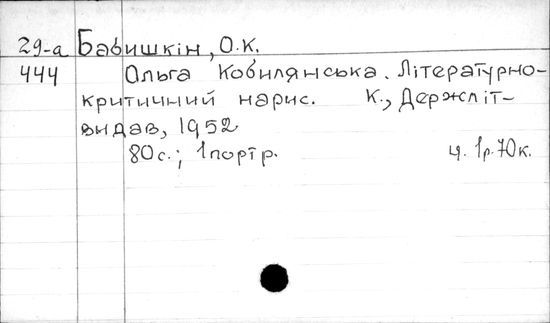 29-а Бабишкін, О.К.
444 Ольга Кобилянська. Літературно-
критичний нарис. К., Держліт-
видав, 1952
80 с.; 1 портр. ц. 1р.70к.